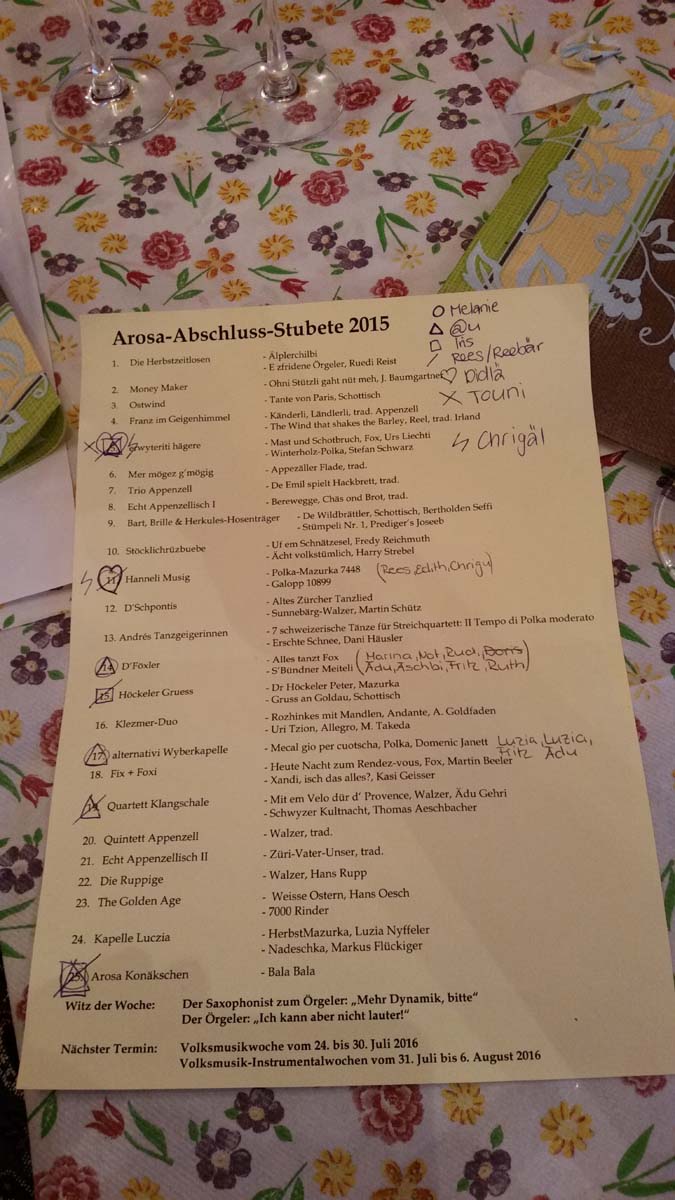 Arosa-Abschluss-Stubete 2015
O Melanie
△ @u
□ Iris
/ Rees/Reebär
♡ Didlä
X Touni
ϟ Chrigäl
1. Die Herbstzeitlosen - Älplerchilbi
- E zfridene Örgeler, Ruedi Reist
2. Money Maker - Ohni Stützli gaht nüt meh, J. Baumgartner
3. Ostwind - Tante von Paris, Schottisch
4. Franz im Geigenhimmel - Känderli, Ländlerli, trad. Appenzell
- The Wind that shakes the Barley, Reel, trad. Irland
X 5. Zwyteriti hägere - Mast und Schotbruch, Fox, Urs Liechti
- Winterholz-Polka, Stefan Schwarz
6. Mer mögez g'mögig - Appezäller Flade, trad.
7. Trio Appenzell - De Emil spielt Hackbrett, trad.
8. Echt Appenzellisch I - Berewegge, Chäs ond Brot, trad.
9. Bart, Brille & Herkules-Hosenträger - De Wildbrättler, Schottisch, Bertholden Seffi
- Stümpeli Nr. 1, Prediger's Joseeb
10. Stöcklichrüzbuebe - Uf em Schnätzesel, Fredy Reichmuth
- Ächt volkstümlich, Harry Strebel
ϟ 11. Hanneli Musig - Polka-Mazurka 7448 (Rees, Edith, Chrigu)
- Galopp 10899
12. D'Schpontis - Altes Zürcher Tanzlied
- Sunnebärg-Walzer, Martin Schütz
13. Andrés Tanzgeigerinnen - 7 schweizerische Tänze für Streichquartett: II Tempo di Polka moderato
- Erschte Schnee, Dani Häusler
14. D'Föxler - Alles tanzt Fox (Marina, Not, Ruedi, Boris
- S'Bündner Meiteli Ädu, Äschbi, Fritz, Ruth)
15. Höckeler Gruess - Dr Höckeler Peter, Mazurka
- Gruss an Goldau, Schottisch
16. Klezmer-Duo - Rozhinkes mit Mandlen, Andante, A. Goldfaden
- Uri Tzion, Allegro, M. Takeda
17. alternativi Wyberkapelle - Mecal gio per cuotscha, Polka, Domenic Janett Luzia, Luzia,
Fritz Ädu
18. Fix + Foxi - Heute Nacht zum Rendez-vous, Fox, Martin Beeler
- Xandi, isch das alles?, Kasi Geisser
19. Quartett Klangschale - Mit em Velo dür d' Provence, Walzer, Ädu Gehri
- Schwyzer Kultnacht, Thomas Aeschbacher
20. Quintett Appenzell - Walzer, trad.
21. Echt Appenzellisch II - Züri-Vater-Unser, trad.
22. Die Ruppige - Walzer, Hans Rupp
23. The Golden Age - Weisse Ostern, Hans Oesch
- 7000 Rinder
24. Kapelle Luczia - HerbstMazurka, Luzia Nyffeler
- Nadeschka, Markus Flückiger
25. Arosa Konäkschen - Bala Bala
Witz der Woche: Der Saxophonist zum Örgeler: „Mehr Dynamik, bitte“
Der Örgeler: „Ich kann aber nicht lauter!“
Nächster Termin: Volksmusikwoche vom 24. bis 30. Juli 2016
Volksmusik-Instrumentalwochen vom 31. Juli bis 6. August 2016